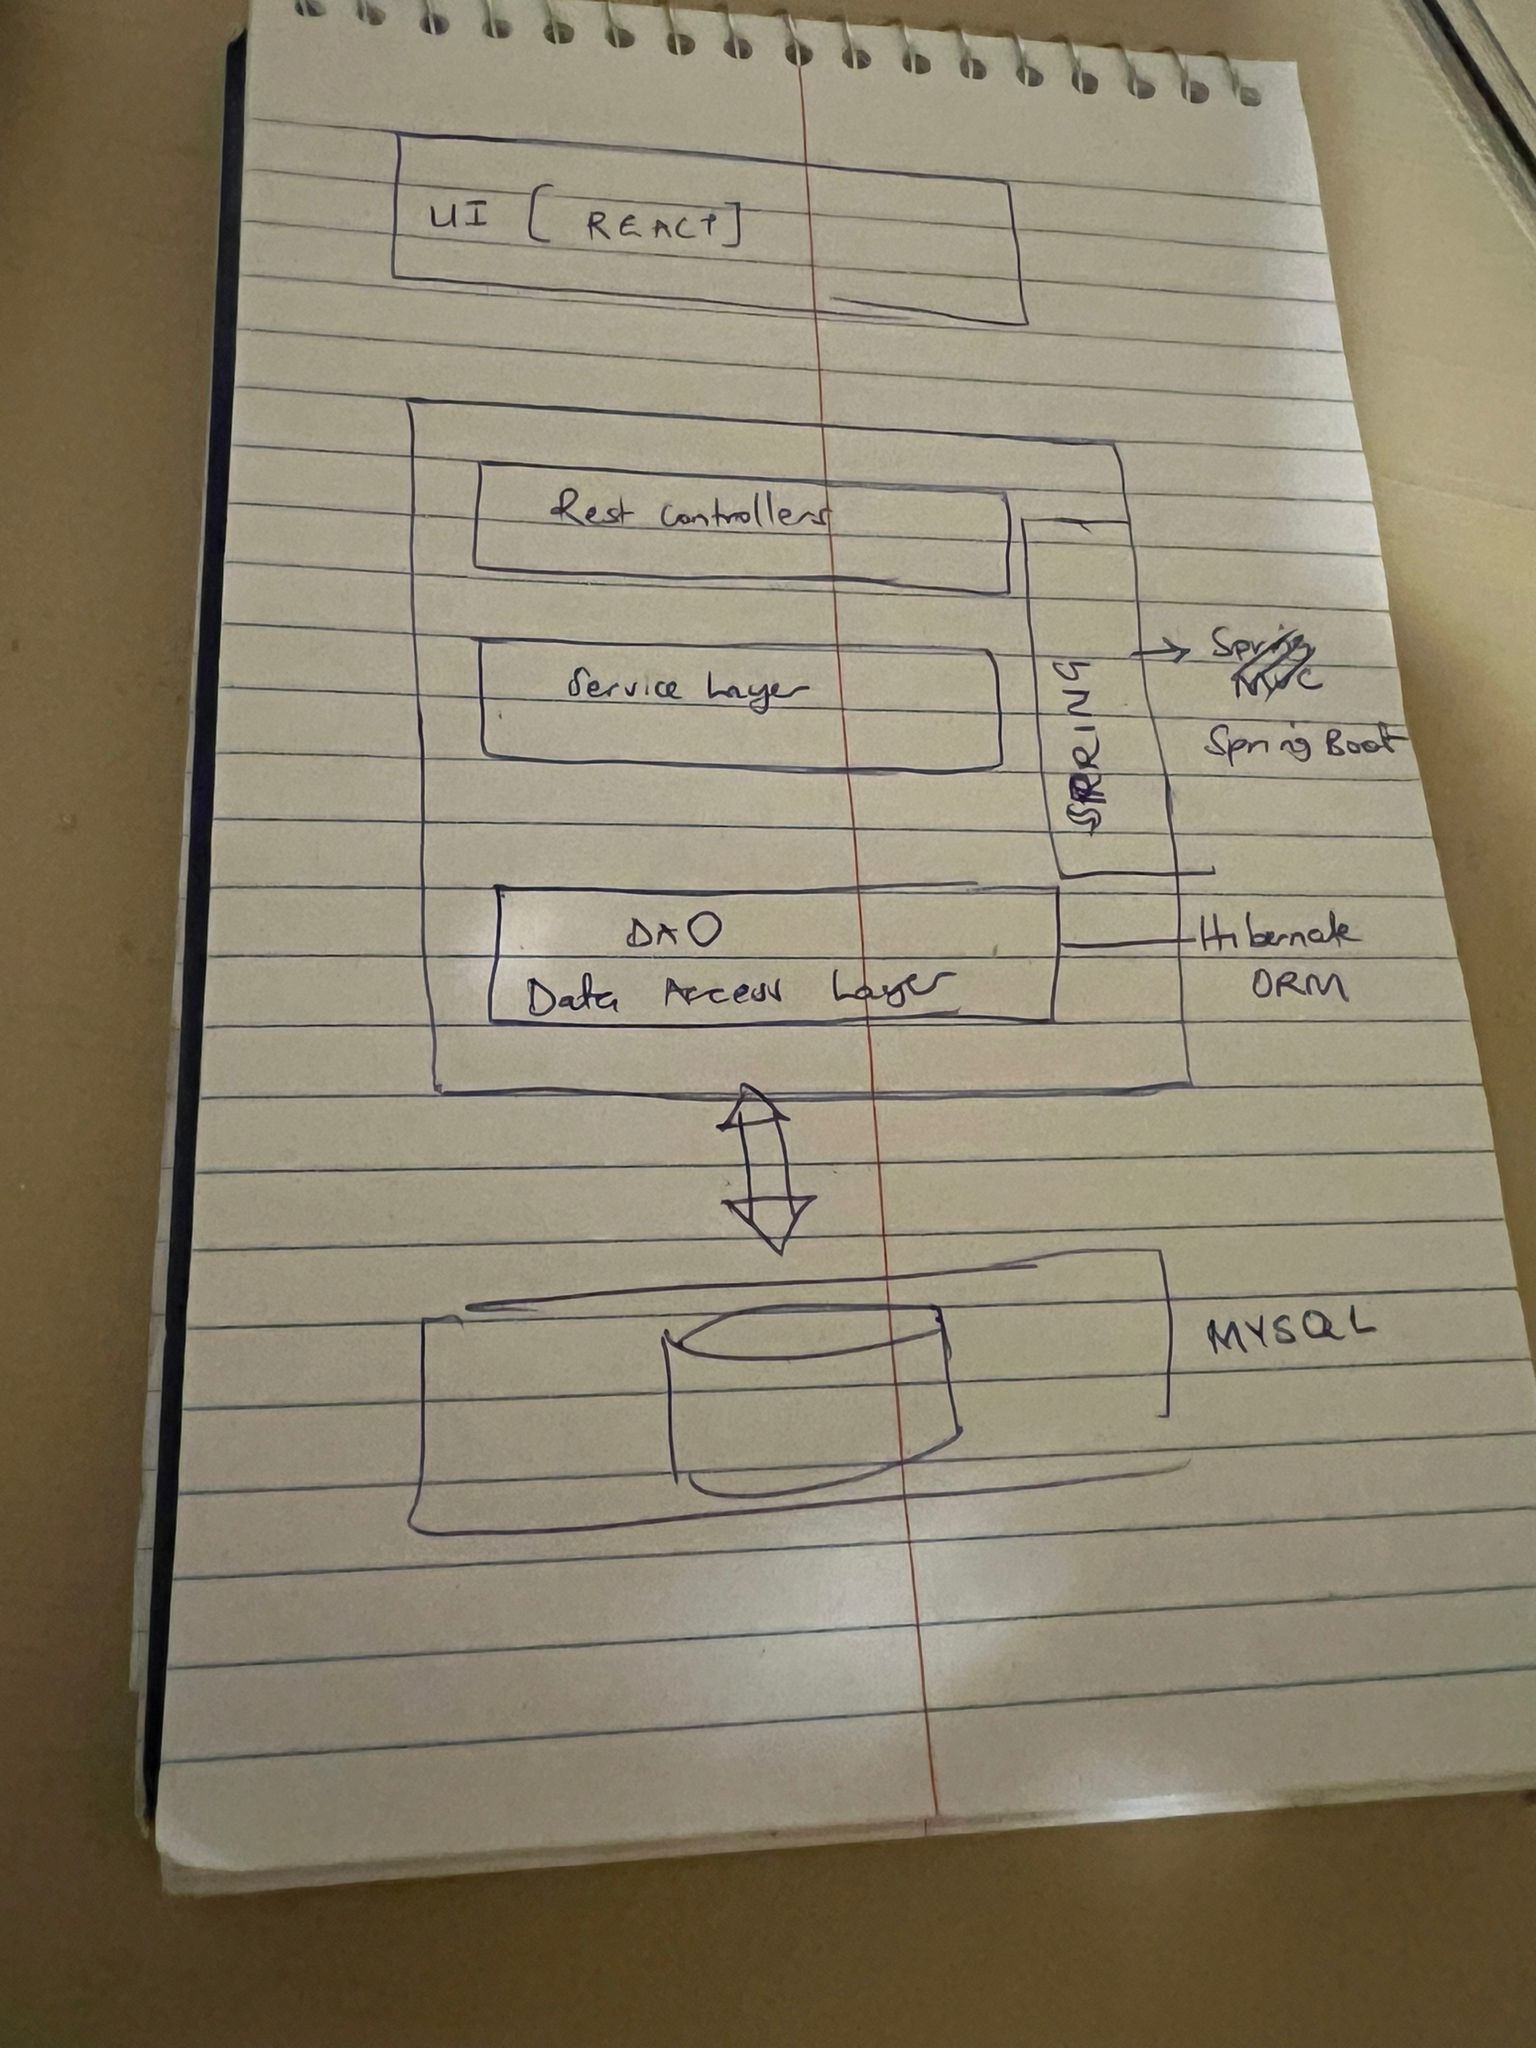 UI [ REACT]
Rest Controllers
Service Layer
SPRING
Spring
MVC
Spring Boot
DAO
Data Access Layer
Hibernate
ORM
MYSQL